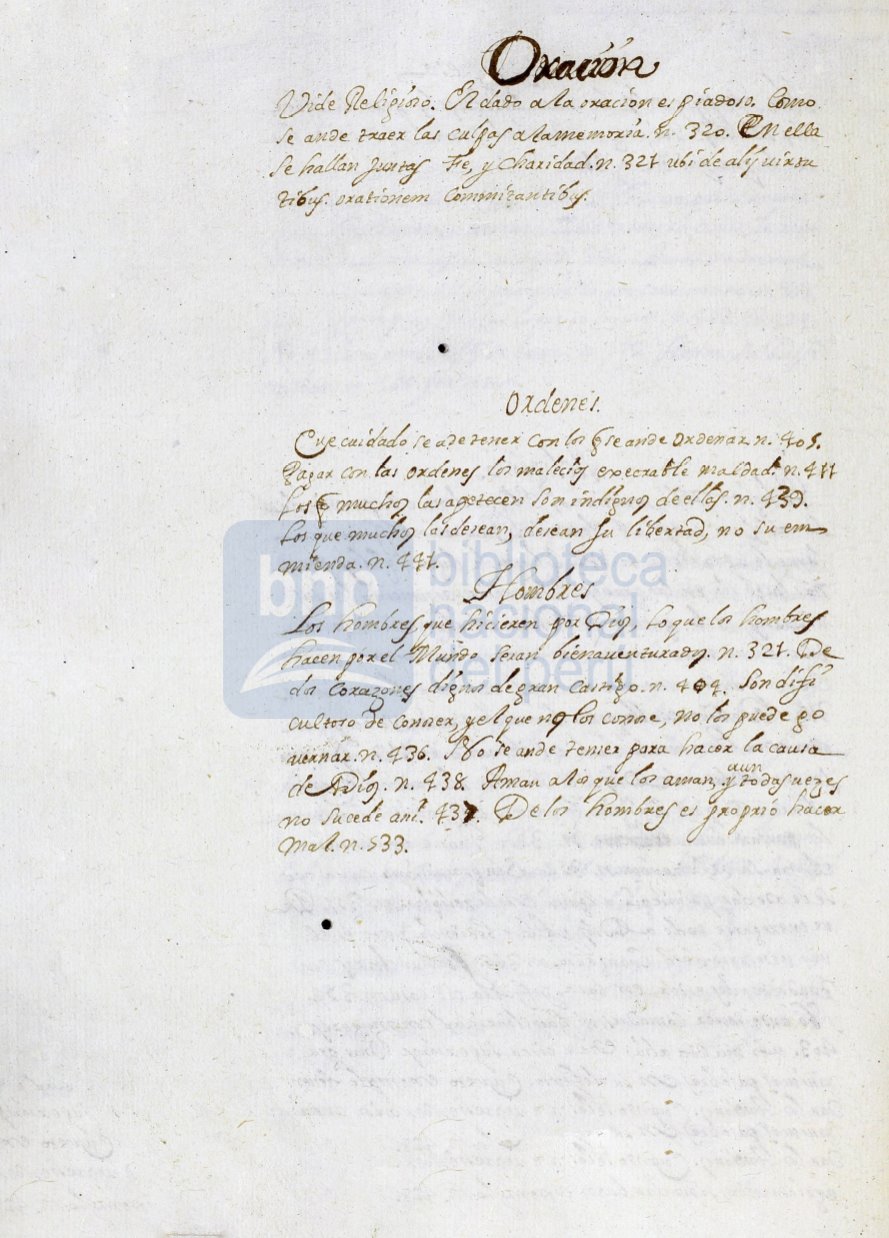 Oracion
Vide Religioso. El dado a la oracion es piadoso. Como
se ande traer las culpas a la memoria. n. 320. En ella
se hallan juntas Fe, y Charidad. n. 321 ubi de alijs virtu
tibus. orationem commitantibus.
Ordenes.
Que cuidado se a de tener con los q se ande ordenar n. 405.
Pagar con las ordenes los malecios execrable maldad. n. 411
Los q muchos las apetecen son indignos de ellas. n. 439.
Los que muchos las desean, desean su libertad, no su em
mienda. n. 441.
Hombres
Los hombres, que hicieren por Dios, lo que los hombres
hacen por el Mundo seran bienaventurados. n. 321. De
dos corazones dignos de gran castigo. n. 404. Son difi
cultoso de conoser, y el que no los conose, no los puede go
vernar. n. 436. No se ande temer para hacer la causa
de Dios. n. 438. Aman a los que los aman, y aun todas vezes
no sucede ansi. 437 De los hombres es proprio hacer
mal. n. 533.
bnp biblioteca
nacional
del perú